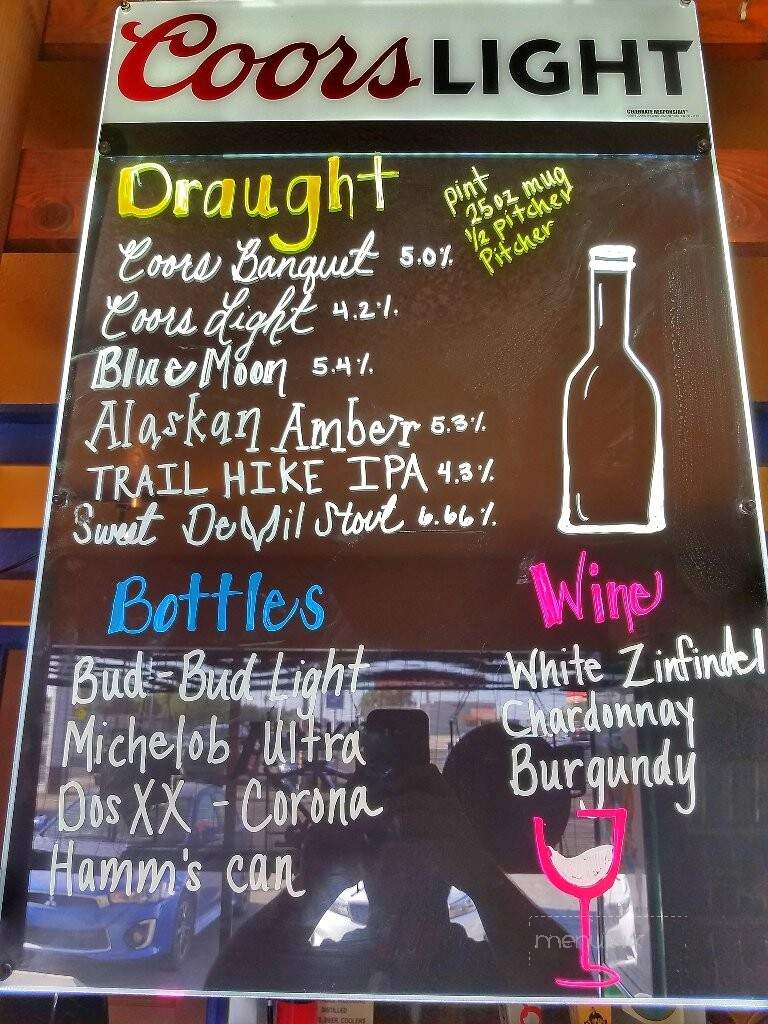 Coors LIGHT
CELEBRATE RESPONSIBLY®
Draught
pint
25oz mug
1/2 pitcher
Pitcher
Coors Banquet 5.0%
Coors Light 4.2%
Blue Moon 5.4%
Alaskan Amber 5.3%
TRAIL HIKE IPA 4.3%
Sweet Devil Stout 6.66%
Bottles
Bud - Bud Light
Michelob Ultra
Dos XX - Corona
Hamm's can
Wine
White Zinfindel
Chardonnay
Burgundy
DISTILLED